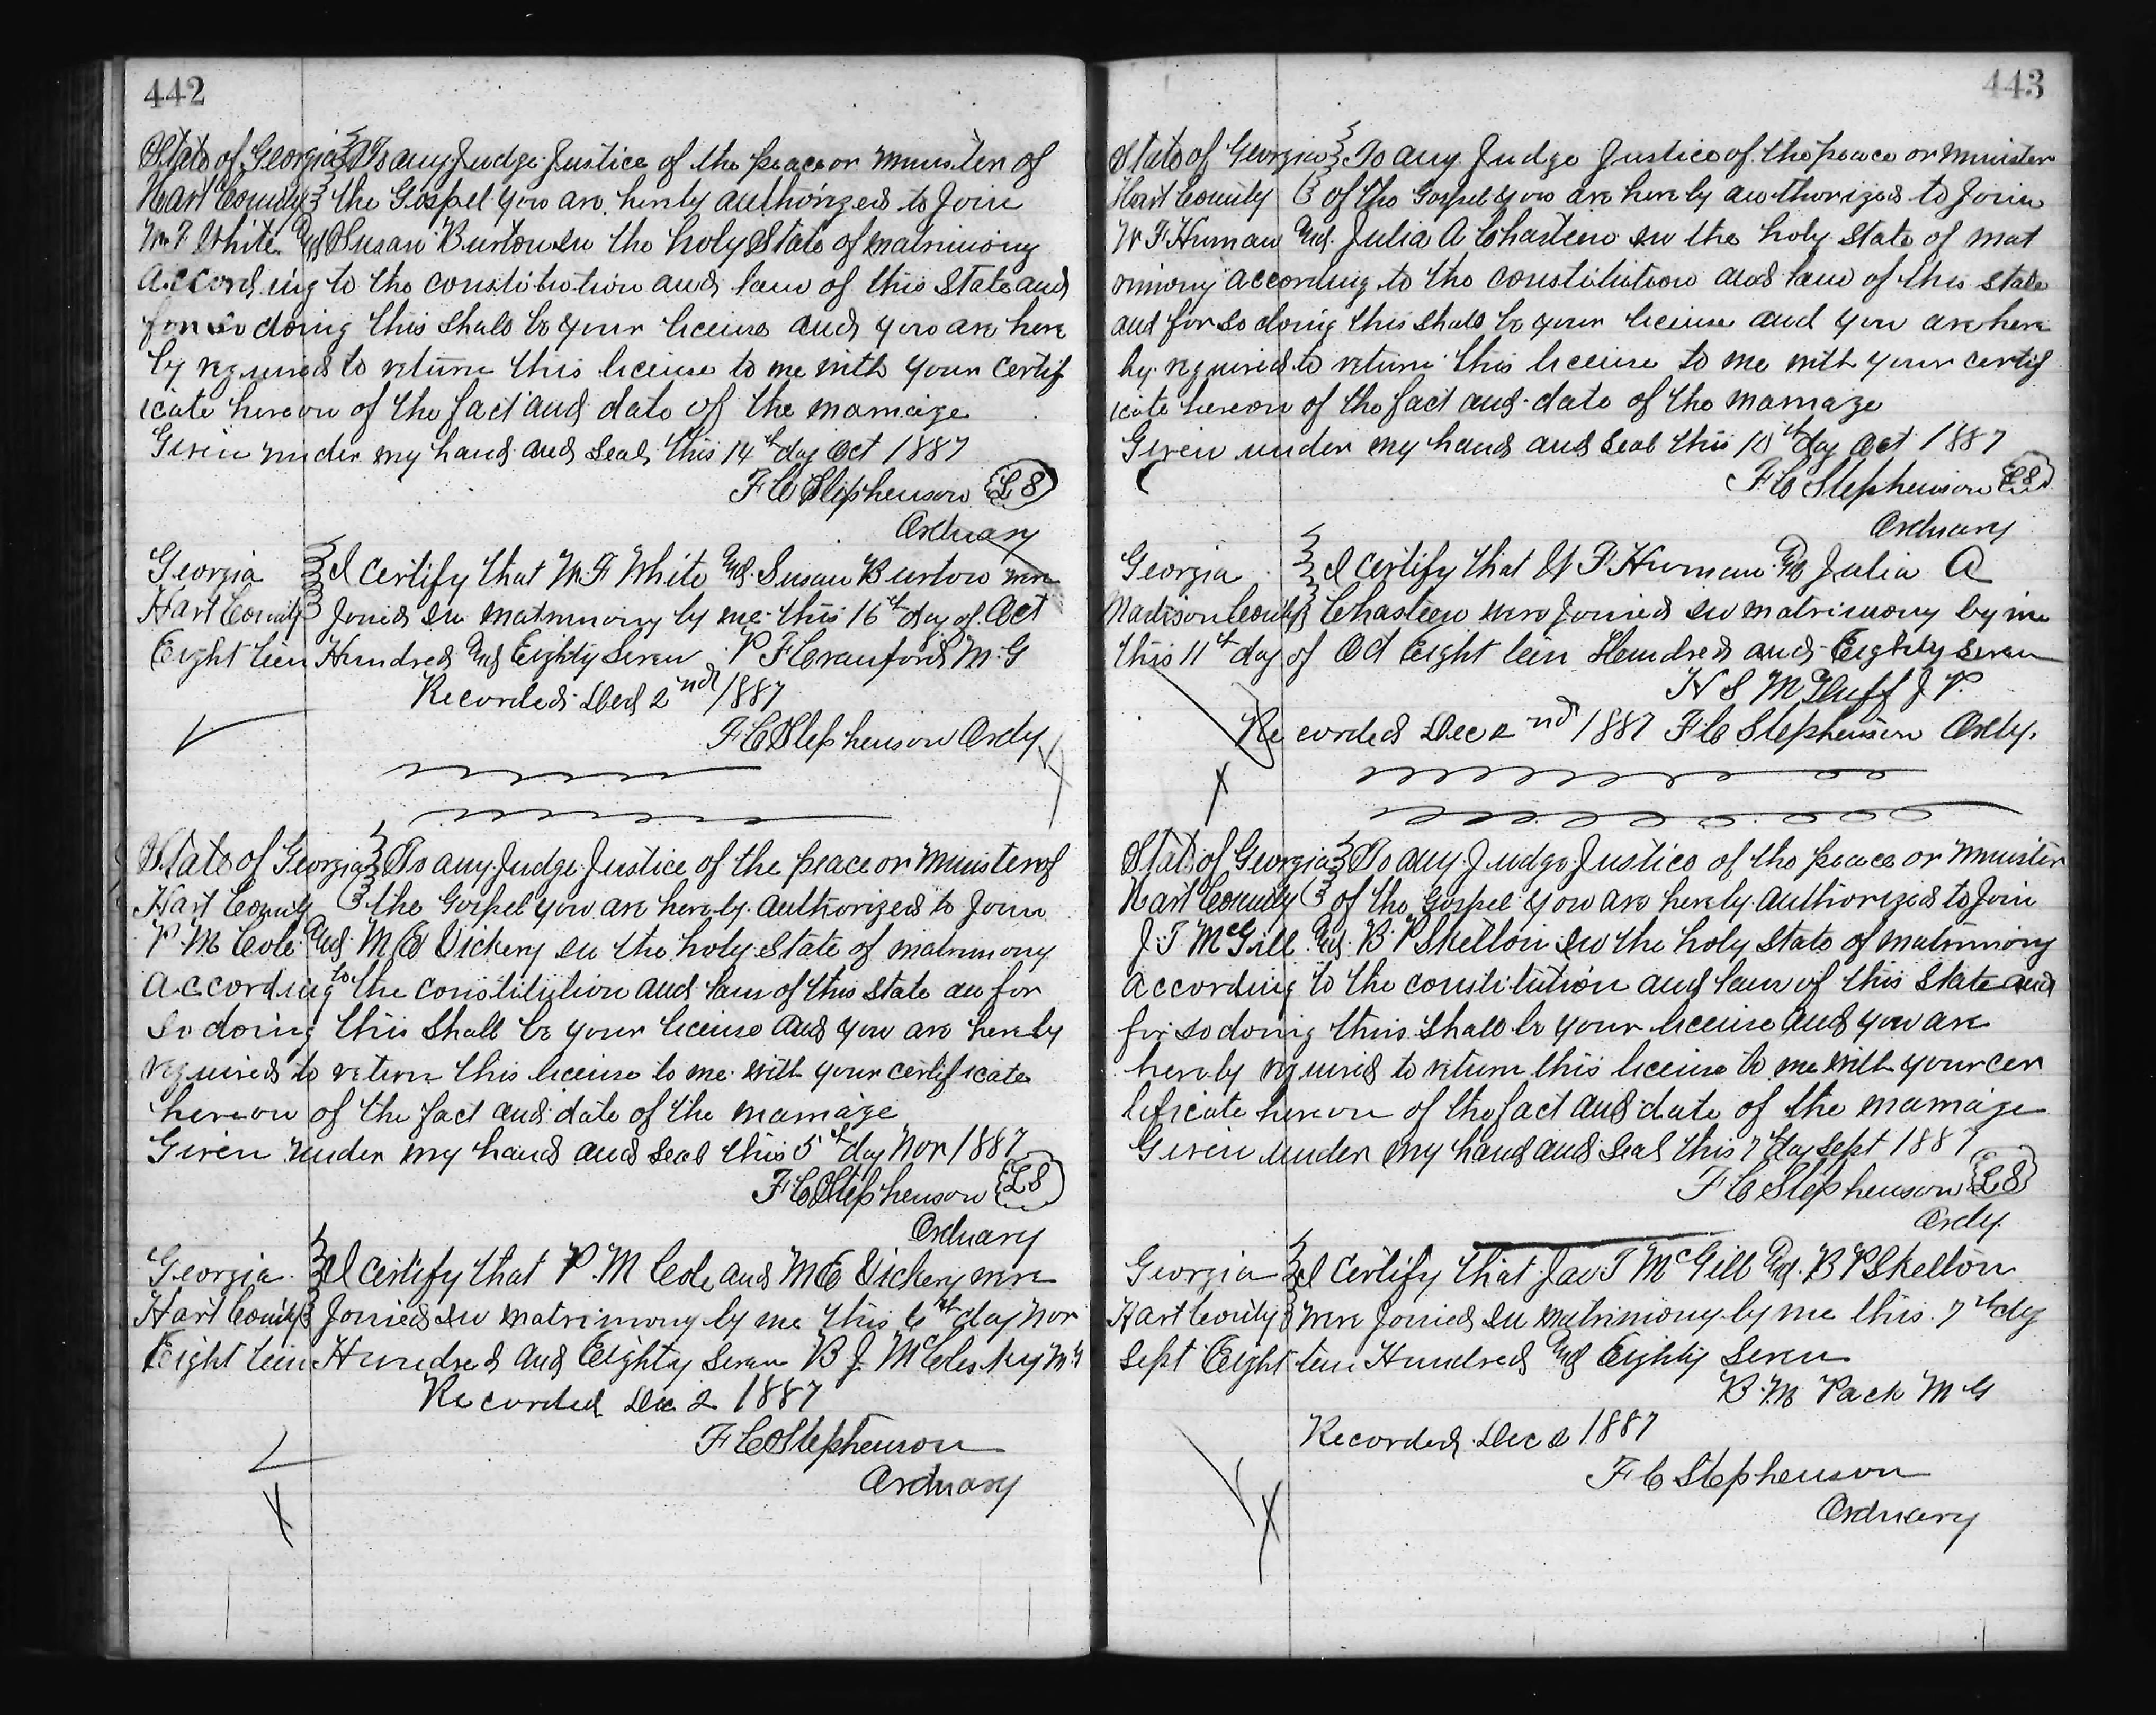 442
State of Georgia To any Judge Justice of the peace or minister of
Hart County the Gospel you are hereby authorized to Join
W F White and Susan Burton in the holy State of matrimony
according to the constitution and law of this State and
for so doing this shall be your license and you are here
by required to return this license to me with your certif
icate hereon of the fact and date of the marriage
Given under my hand and seal this 14th day Oct 1887
F C Stephenson L S
Orduary
Georgia I certify that W F White and Susan Burton were
Hart County Joined in matrimony by me this 16th day of Oct
Eight teen Hundred and Eighty Seven P F Crawford M G
Recorded Dec 2nd 1887
F C Stephenson Ordy
State of Georgia To any Judge Justice of the peace or minister of
Hart County the Gospel you are hereby authorized to Join
P M Cole and M E Vickery in the holy State of matrimony
according to the constitution and law of this State an for
so doing this shall be your license and you are hereby
required to return this license to me with your certificate
hereon of the fact and date of the marriage
Given under my hand and seal this 5th day Nov 1887
F C Stephenson L S
Orduary
Georgia I certify that P. M Cole and M E Vickery were
Hart County Joined in matrimony by me this 6th day Nov
Eight teen Hundred and Eighty Seven B J M
Recorded Dec 2 1887
F C Stephenson
Orduary
443
State of Georgia To any Judge Justice of the peace or minister
Hart County of the Gospel you are hereby authorized to Join
W F Human and Julia A Chasteen in the holy State of mat
rimony according to the constitution and law of this State
and for so doing this shall be your license and you are here
by required to return this license to me with your certif
icate hereon of the fact and date of the marriage
Given under my hand and seal this 10th day Oct 1887
F C Stephenson L S
Orduary
Georgia I certify that W F Human and Julia A
Madison County Chasteen were Joined in matrimony by me
this 11th day of Oct Eight teen Hundred and Eighty Seven
J P
Recorded Dec 2nd 1887 F C Stephenson Ordy.
State of Georgia To any Judge Justice of the peace or minister
Hart County of the Gospel you are hereby authorized to Join
J. T McGill and B P Skelton in the holy State of matrimony
according to the constitution and law of this State and
for so doing this shall be your license and you are
hereby required to return this license to me with your cer
tificate hereon of the fact and date of the marriage
Given under my hand and seal this 7th day Sept 1887
F C Stephenson L S
Ordy.
Georgia I certify that Jas T McGill and B P Skelton
Hart County were Joined in matrimony by me this 7th dy
Sept Eight teen Hundred and Eighty Seven
B. M Pack M G
Recorded Dec 2 1887
F C Stephenson
Orduary